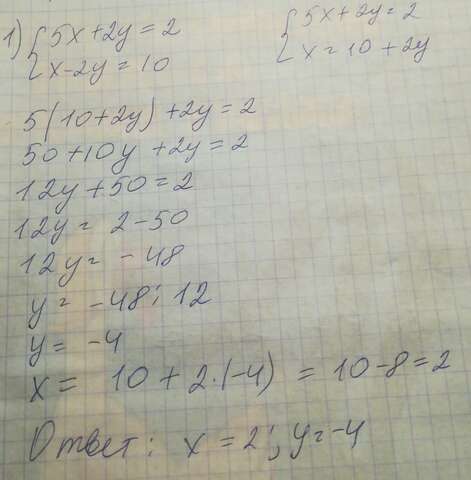 1) { 5x+2y=2
x-2y=10
{ 5x+2y=2
x=10+2y
5(10+2y)+2y=2
50+10y+2y=2
12y+50=2
12y=2-50
12y=-48
y=-48:12
y=-4
x=10+2·(-4)=10-8=2
Ответ: x=2; y=-4